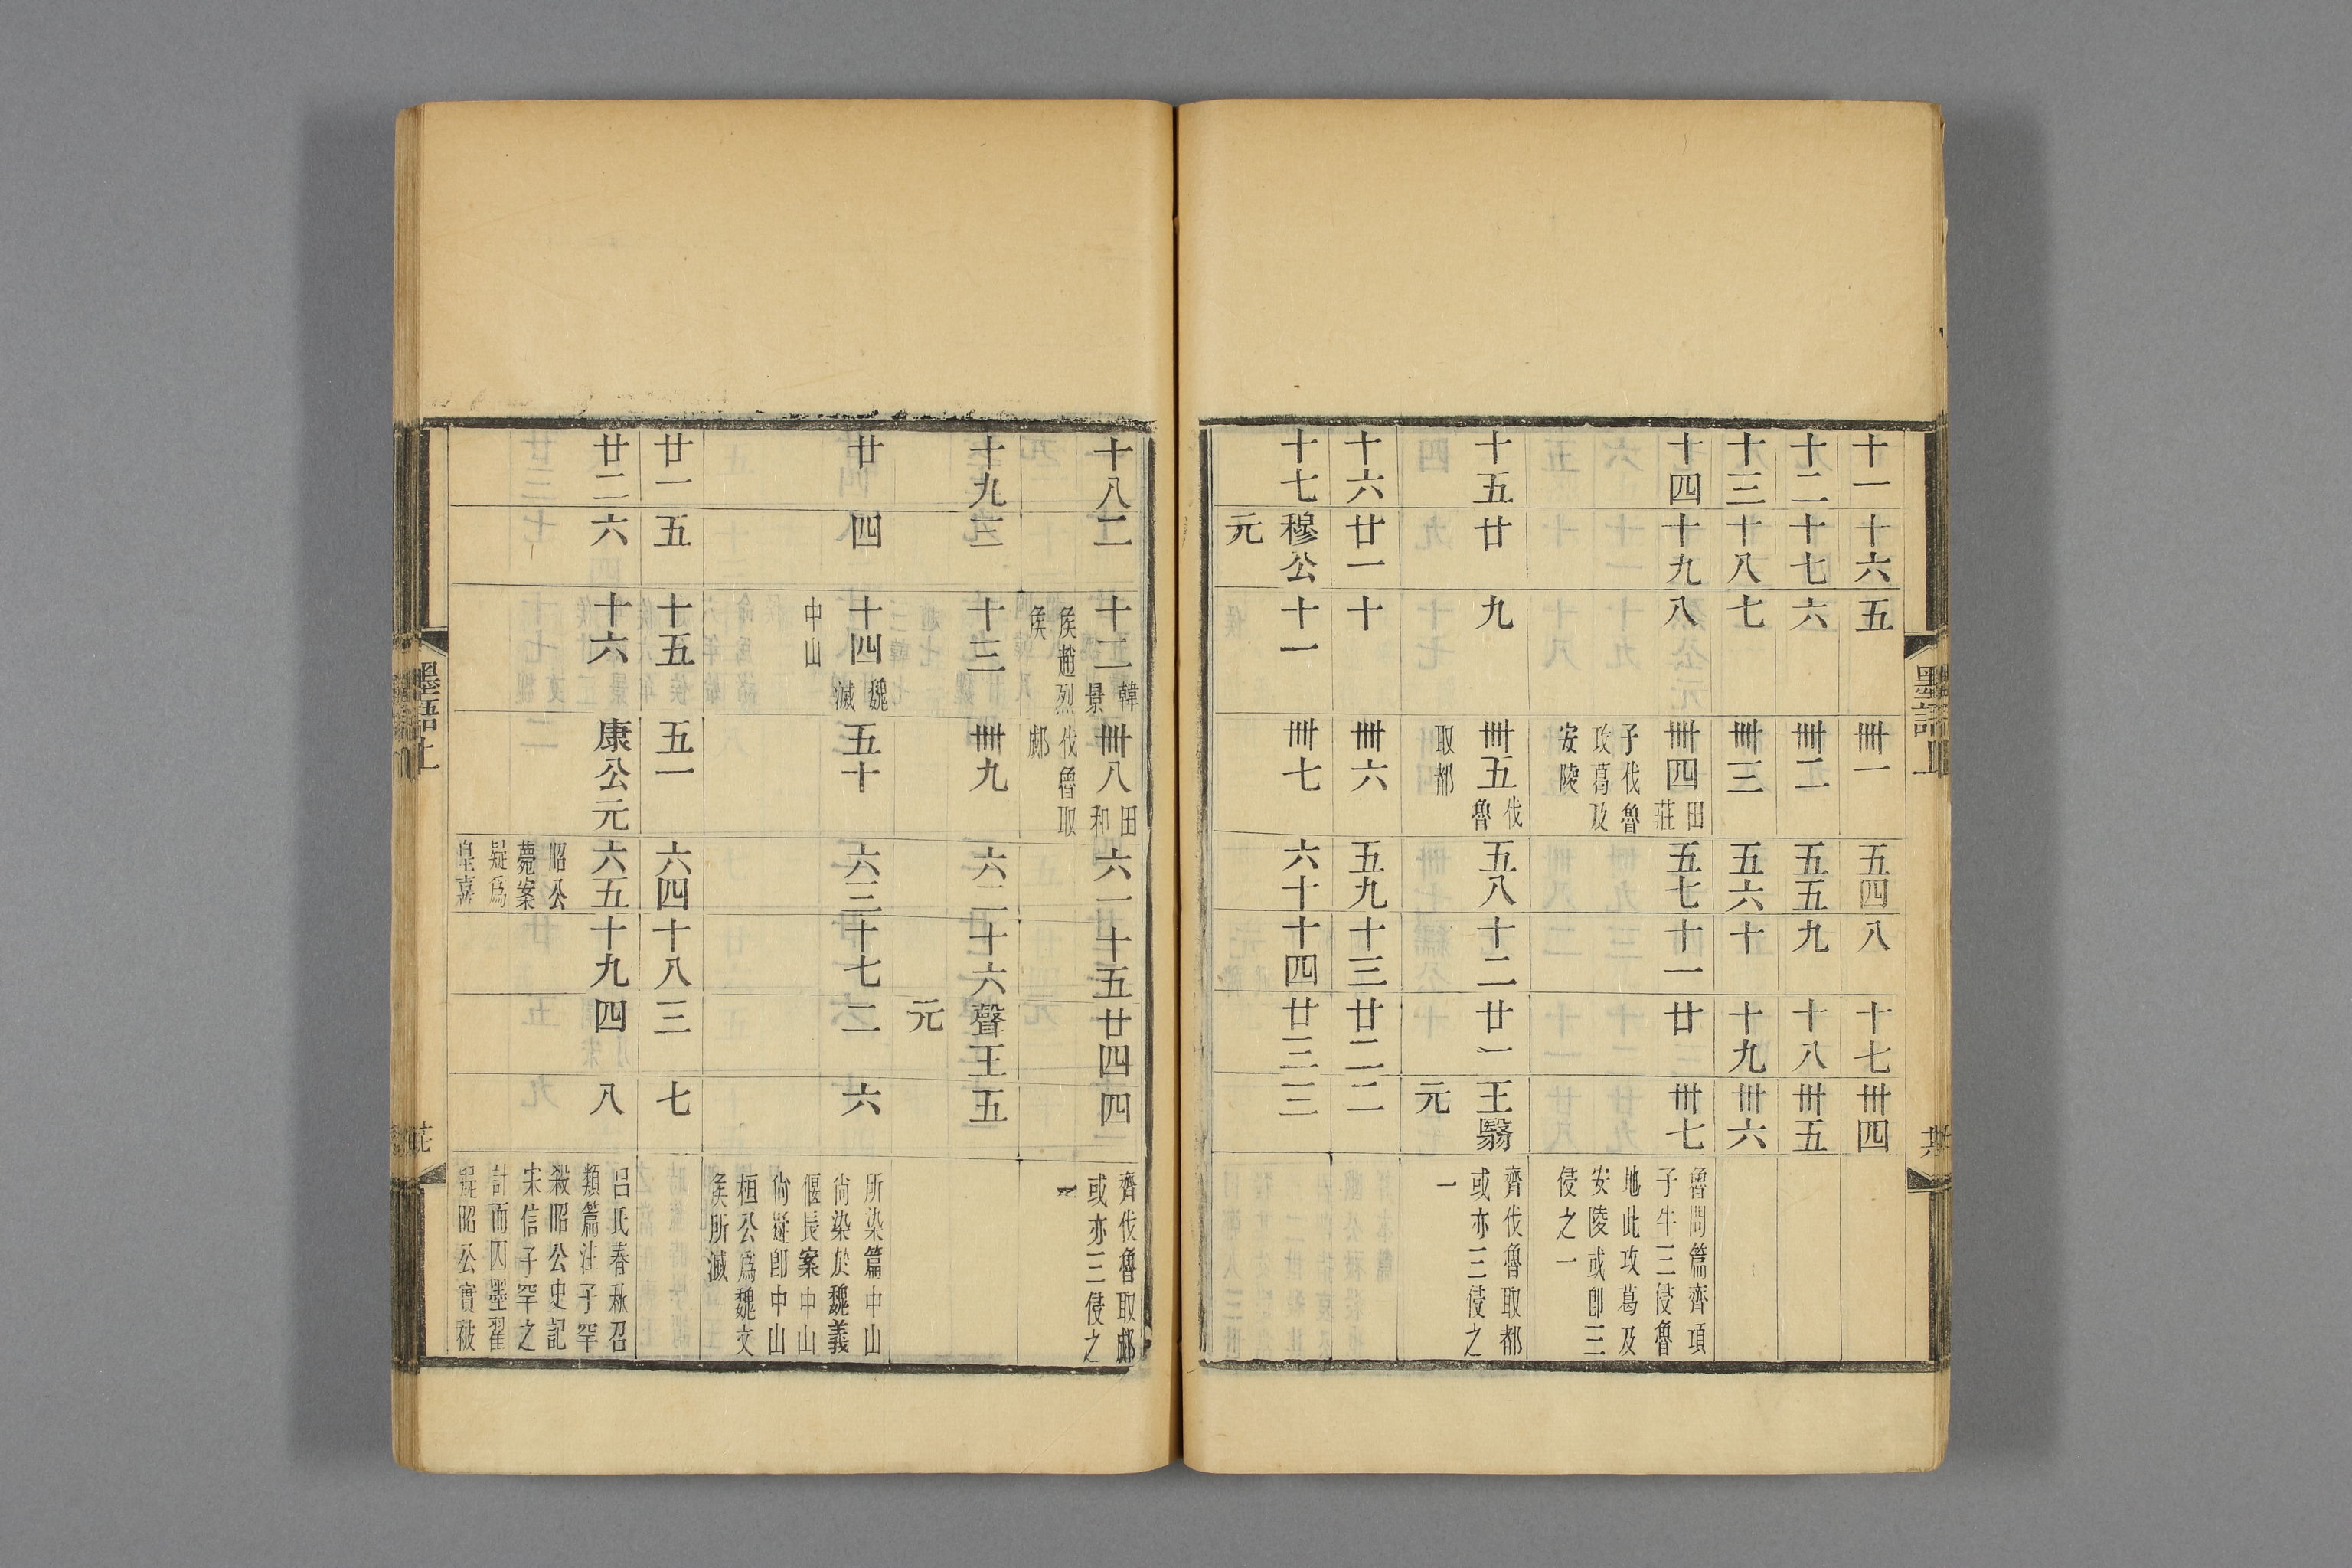 墨語上
十一 十六 五 卅一 五四 八 十七 卅四
十二 十七 六 卅二 五五 九 十八 卅五
十三 十八 七 卅三 五六 十 十九 卅六
十四 十九 八 卅四 田莊子伐魯攻葛及安陵 五七 十一 廿 卅七 魯問篇齊項
子牛三侵魯
地此攻葛及
安陵或卽三
侵之一
十五 廿 九 卅五 伐魯取都 五八 十二 廿一 王翳元 齊伐魯取都
或亦三侵之
一
十六 廿一 十 卅六 五九 十三 廿二 二
十七 穆公元 十一 卅七 六十 十四 廿三 三
十八 二 十二 韓景侯趙烈侯 卅八 田和伐魯取郕 六一 十五 廿四 四 齊伐魯取郕
或亦三侵之
一
十九 三 十三 卅九 六二 十六 聲王元 五
廿 四 十四 魏滅中山 五十 六三 十七 二 六 所染篇中山
尙染於魏義
偃長案中山
尙疑卽中山
桓公爲魏文
侯所滅
廿一 五 十五 五一 六四 十八 三 七
廿二 六 十六 康公元 六五 昭公薨案疑爲皇喜 十九 四 八 呂氏春秋召
類篇注子罕
殺昭公史記
宋信子罕之
計而囚墨翟
疑昭公實被
墨語上